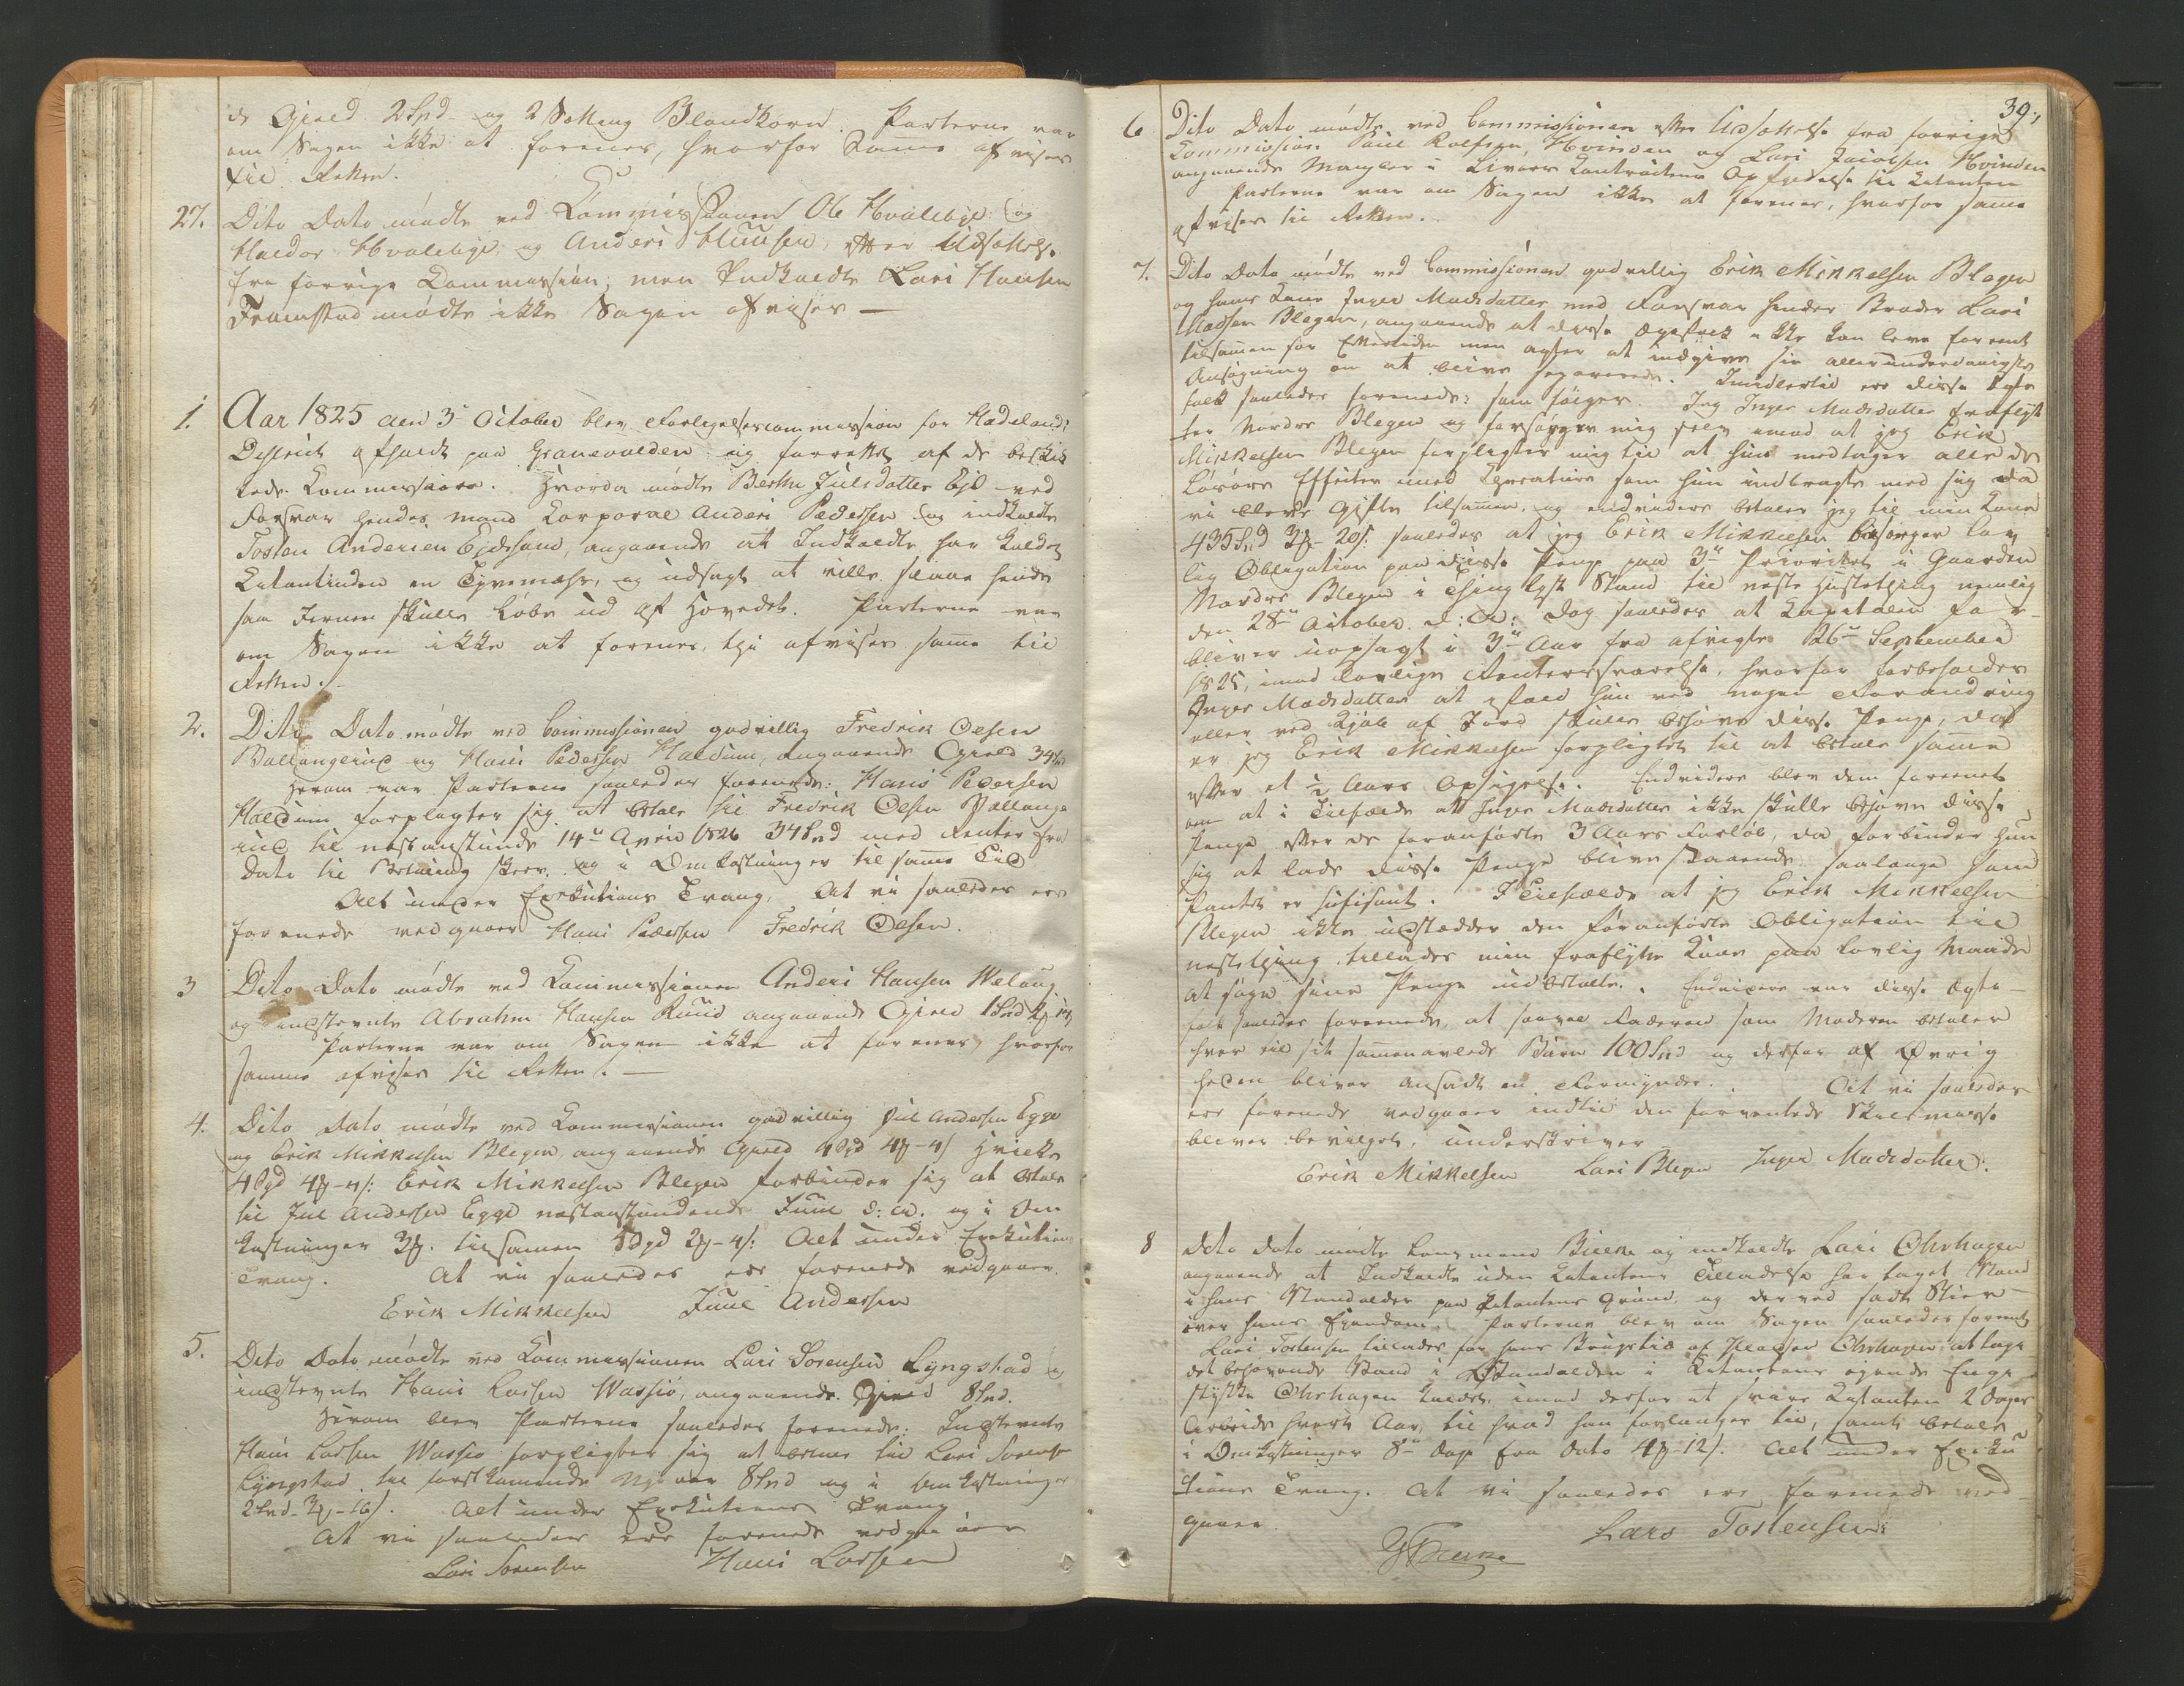 de Gjæld 2 Spd og 2 Sætting Blandkorn. Parterne var
om Sagen ikke at forenes, hvorfor Samme afvises
til Retten.
27. Dito Dato mødte ved Commissionen Ole Hvaleby og
Haldor Hvalebye og Anders Hansen, efter Udsættelse
fra forrige Commission; men Indkaldte Lars Hansen
mødte ikke Sagen afvises —
1. Aar 1825 den 3 October blev Forligelsescommission for Hadelands
District afholdt paa Granevolden og forrettet af de beskik
kede Kommissairer. Hvorda mødte Berthe Julsdatter ved
Forsvar hendes mand Corporal Anders Pedersen og indkaldte
Tosten Andersen, angaaende at Indkaldte har kaldet
Citantinden en Tyvemær, og udsagt at ville slaae hende
saa Jernen skulle løbe ud af Hovedet. Parterne var
om Sagen ikke at forenes, thi afvises samme til
Retten.
2. Dito Dato mødte ved Commissionen godvillig Fredrik Olsen
Ballangrud og Hans Pedersen Haldum, angaaende Gjæld 34 Spd
Herom var Parterne saaledes forenede: Hans Pedersen
Haldum forpligter sig at betale til Fredrik Olsen Ballang
rud til næstanstundende 14de April 1826 34 Spd med Renter fra
Dato til Betaling skeer, og i Omkostninger til samme Tid
Alt under Exekutions Tvang. At vi saaledes ere
forenede vedgaaer Hans Pedersen Fredrik Olsen.
3 Dito Dato mødte ved Kommissionen Anders Hansen Velaug
og indstevnte Abraham Hansen Ruud angaaende Gjæld 1 Spd
Parterne var om Sagen ikke at forenes, hvorfor
samme afvises til Retten. —
4. Dito Dato mødte ved Kommissionen godvillig Jul Andersen Egge
og Erik Mikkelsen Blegen, angaaende Gjæld 4 Spd 4 ƒ - 4 ʃ Hvilke
4 Spd 4 ƒ - 4 ʃ: Erik Mikkelsen Blegen forbinder sig at betale
til Jul Andersen Egge næstanstundende Juul d: A. og i Om
kostninger 3 ƒ. tilsamen 5 Spd 2 ƒ - 4 ʃ: Alt under Exekutions
Tvang. At vi saaledes ere forenede vedgaaer.
Erik Mikkelsen Juul Andersen
5. Dito Dato mødte ved Kommissionen Lars Sørensen Lyngstad og
indstevnte Hans Larsen Wassiø, angaaende Gjæld 8 Spd.
Herom blev Parterne saaledes forenede: Indstevnte
Hans Larsen Wassiø forpligter sig at betale til Lars Sørensen
Lyngstad til førstkomende Nyeaar 8 Spd og i Omkostninger
2 Spd - 3 ƒ - 16 ʃ. Alt under Exekutions Tvang
At vi saaledes ere forenede vedgaaer
Lars Sørensen Hans Larsen
39,
6 Dito Dato mødte ved Commissionen efter Udsættelse fra forrige
Commission Paul Rolfsen Hvinden og Lars Jacobsen Hvinden
angaaende Mangler i Livøre Contractens Opfyldelse til Citanten
Parterne var om Sagen ikke at forenes, hvorfor samme
afvises til Retten.
7. Dito Dato mødte ved Commissionen godvillig Erik Mikkelsen Blegen
og hans Kone Inger Madsdatter med Forsvar hendes Broder Lars
Madsen Blegen, angaaende at disse Ægtefolk ikke kan leve foreent
tilsamen for Eftertiden men agter at indgive sin allerunderdanigste
Ansøgning om at blive separerede. Imidlertid ere disse Ægte
folk saaledes forenede: som følger. Jeg Inger Madsdatter fraflyt
ter Nordre Blegen og forsørger mig selv imod at jeg Erik
Mikkelsen Blegen forpligter mig til at hun medtager alle de
Løsøre Effecter med Creature som hun indbragte med sig da
vi bleve Gifte tilsamen, og endvidere betaler jeg til min Kone
435 Spd 3 ƒ - 20 ʃ: saaledes at jeg Erik Mikkelsen besørger lov
lig Obligation paa disse Penge paa 3die Prioritet i Gaarden
Nordre Blegen i thinglyst Stand til næste Høstething nemlig
den 28de October d: A: Dog saaledes at Capitalen for
bliver uopsagt i 3de Aar fra afvigte 26de September
1825, imod lovlige Renters svarelse, hvorfor forbeholder
Inger Madsdatter at ifald hun ved nogen Forandring
eller ved Kjøb af Jord skulle behøve disse Penge, da
er jeg Erik Mikkelsen forpligtet til at betale samme
efter et ½ Aars Opsigelse. Endvidere blev dem foreenet
om at i Tilfælde at Inger Madsdatter ikke skulle behøve disse
Penge efter de foranførte 3 Aars Forløb, da forbinder hun
sig at lade disse Penge blive staaende saalænge som
Pantet er sufisant. I Tilfælde at jeg Erik Mikkelsen
Blegen ikke udstædder den foranførte Obligation til
næstething tillades min fraflytte Kone paa lovlig Maade
at søge sine Penge udbetalte. Endvidere var disse Ægte-
folk saaledes foreenede, at saavel Faderen som Moderen betaler
hver til sit sammenavlede Barn 100 Spd og derfor af Øvrig
heden bliver ansadt en Formynder. At vi saaledes
ere forenede vedgaaer indtil den forventede Skilsmisse
bliver bevilget, underskriver
Erik Mikkelsen Lars Blegen Inger Madsdatter.
8 Dito dato mødte Lensmand Bierke og indkaldte Lars Ohrhagen
angaaende at Indkaldte uden Citantens Tilladelse har taget Vand
i hans paa Citantens Grund, og derved sadt Stier
over hans Eiendom. Parterne blev om Sagen saaledes foreent
Lars Tostensen tillades for hans Brugstid af Pladsen Ohrhagen at tage
det behøvende Vand i i Citantens eiende Enge
stykke Ohrhagen kaldet, imod derfor at svare Citanten 2 Dages
Arbeide hvert Aar, til hvad han forlanges til, samt betale
i Omkostninger 8te Dage fra Dato 4 ƒ - 12 ʃ. Alt under Exeku
tions Tvang. At vi saaledes ere forenede ved-
gaaer. Lars Tostensen